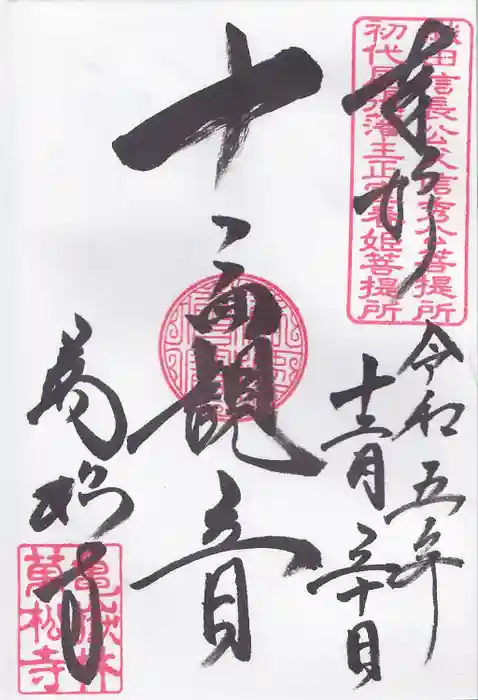 織田信長公父信秀公菩提所
初代尾張藩主正室春姫菩提所
奉拝
令和五年
十二月三十日
十一面観音
萬松寺
亀嶽林
萬松寺